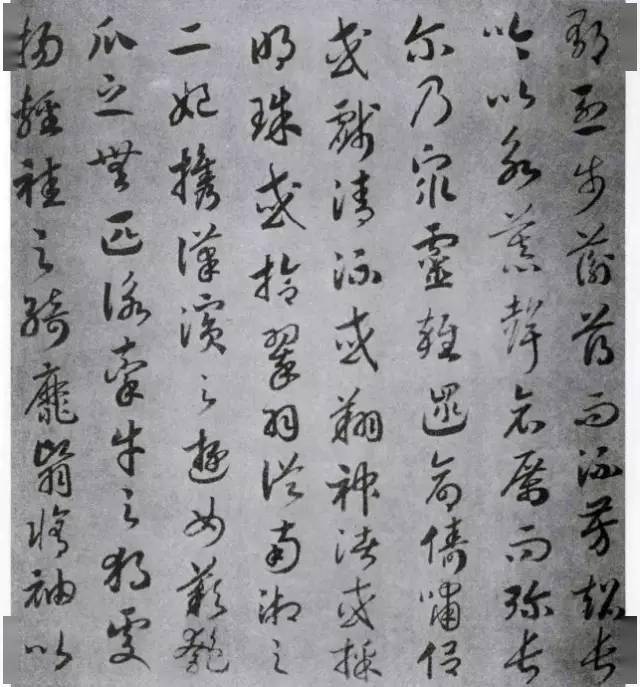 郁烈步蘅薄而流芳超長
吟以永慕聲哀厲而弥長
尔乃眾靈雜遝命儔嘯侶
或戲清流或翔神渚或採
明珠或拾翠羽從南湘之
二妃攜漢濱之遊女歎匏
瓜之無匹詠牽牛之獨處
揚輕袿之綺靡翳脩袖以